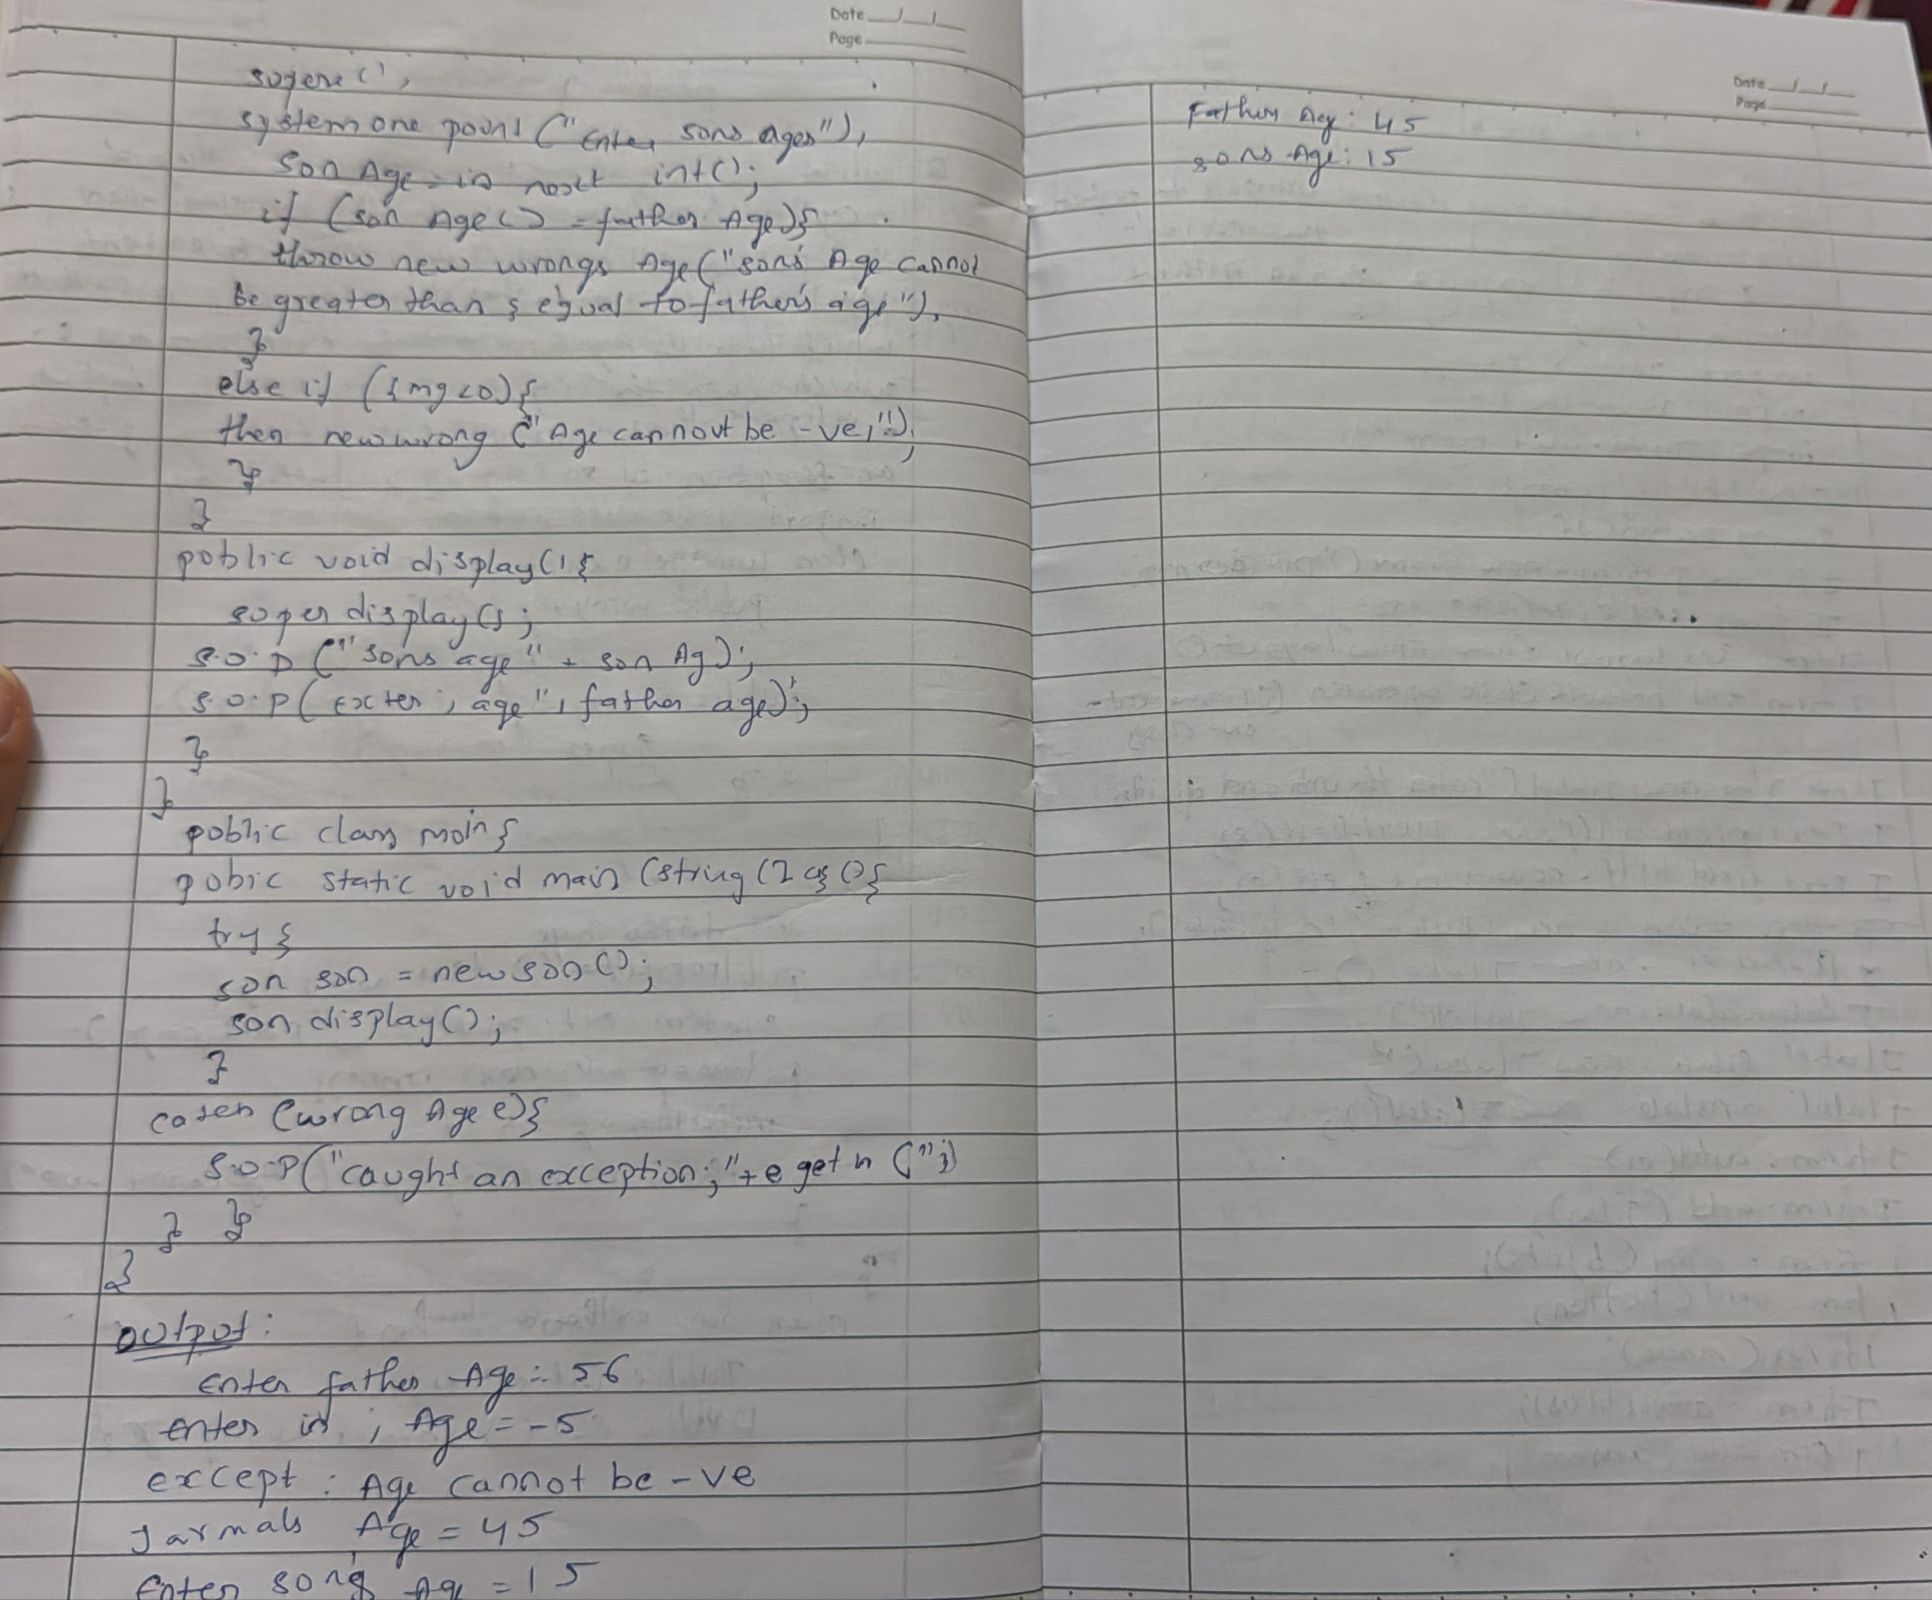 Date
Page
super();
system one point ("Enter sons ages"),
son Age = in next int();
if (son Age () = father Age){
throw new wrongs Age("son's Age cannot
be greater than & equal to father's age"),
}
else if ( <0){
then new wrong ("Age cannout be -ve,"!);
}
}
public void display(){
super display();
S.O.P ("sons age" + son Ag);
S.O.P( exter , age", father age);
}
}
public class main{
pubic static void main (string (] {
try {
son son = new son();
son display();
}
catch (wrong Age e){
S.O.P("caught an exception;"+e get n (");
} }
}
output:
Enter father Age: 56
enter , Age = -5
except : Age cannot be -ve
Age = 45
Enter song Age = 15
Date
Page
Fathers Age: 45
sons Age: 15